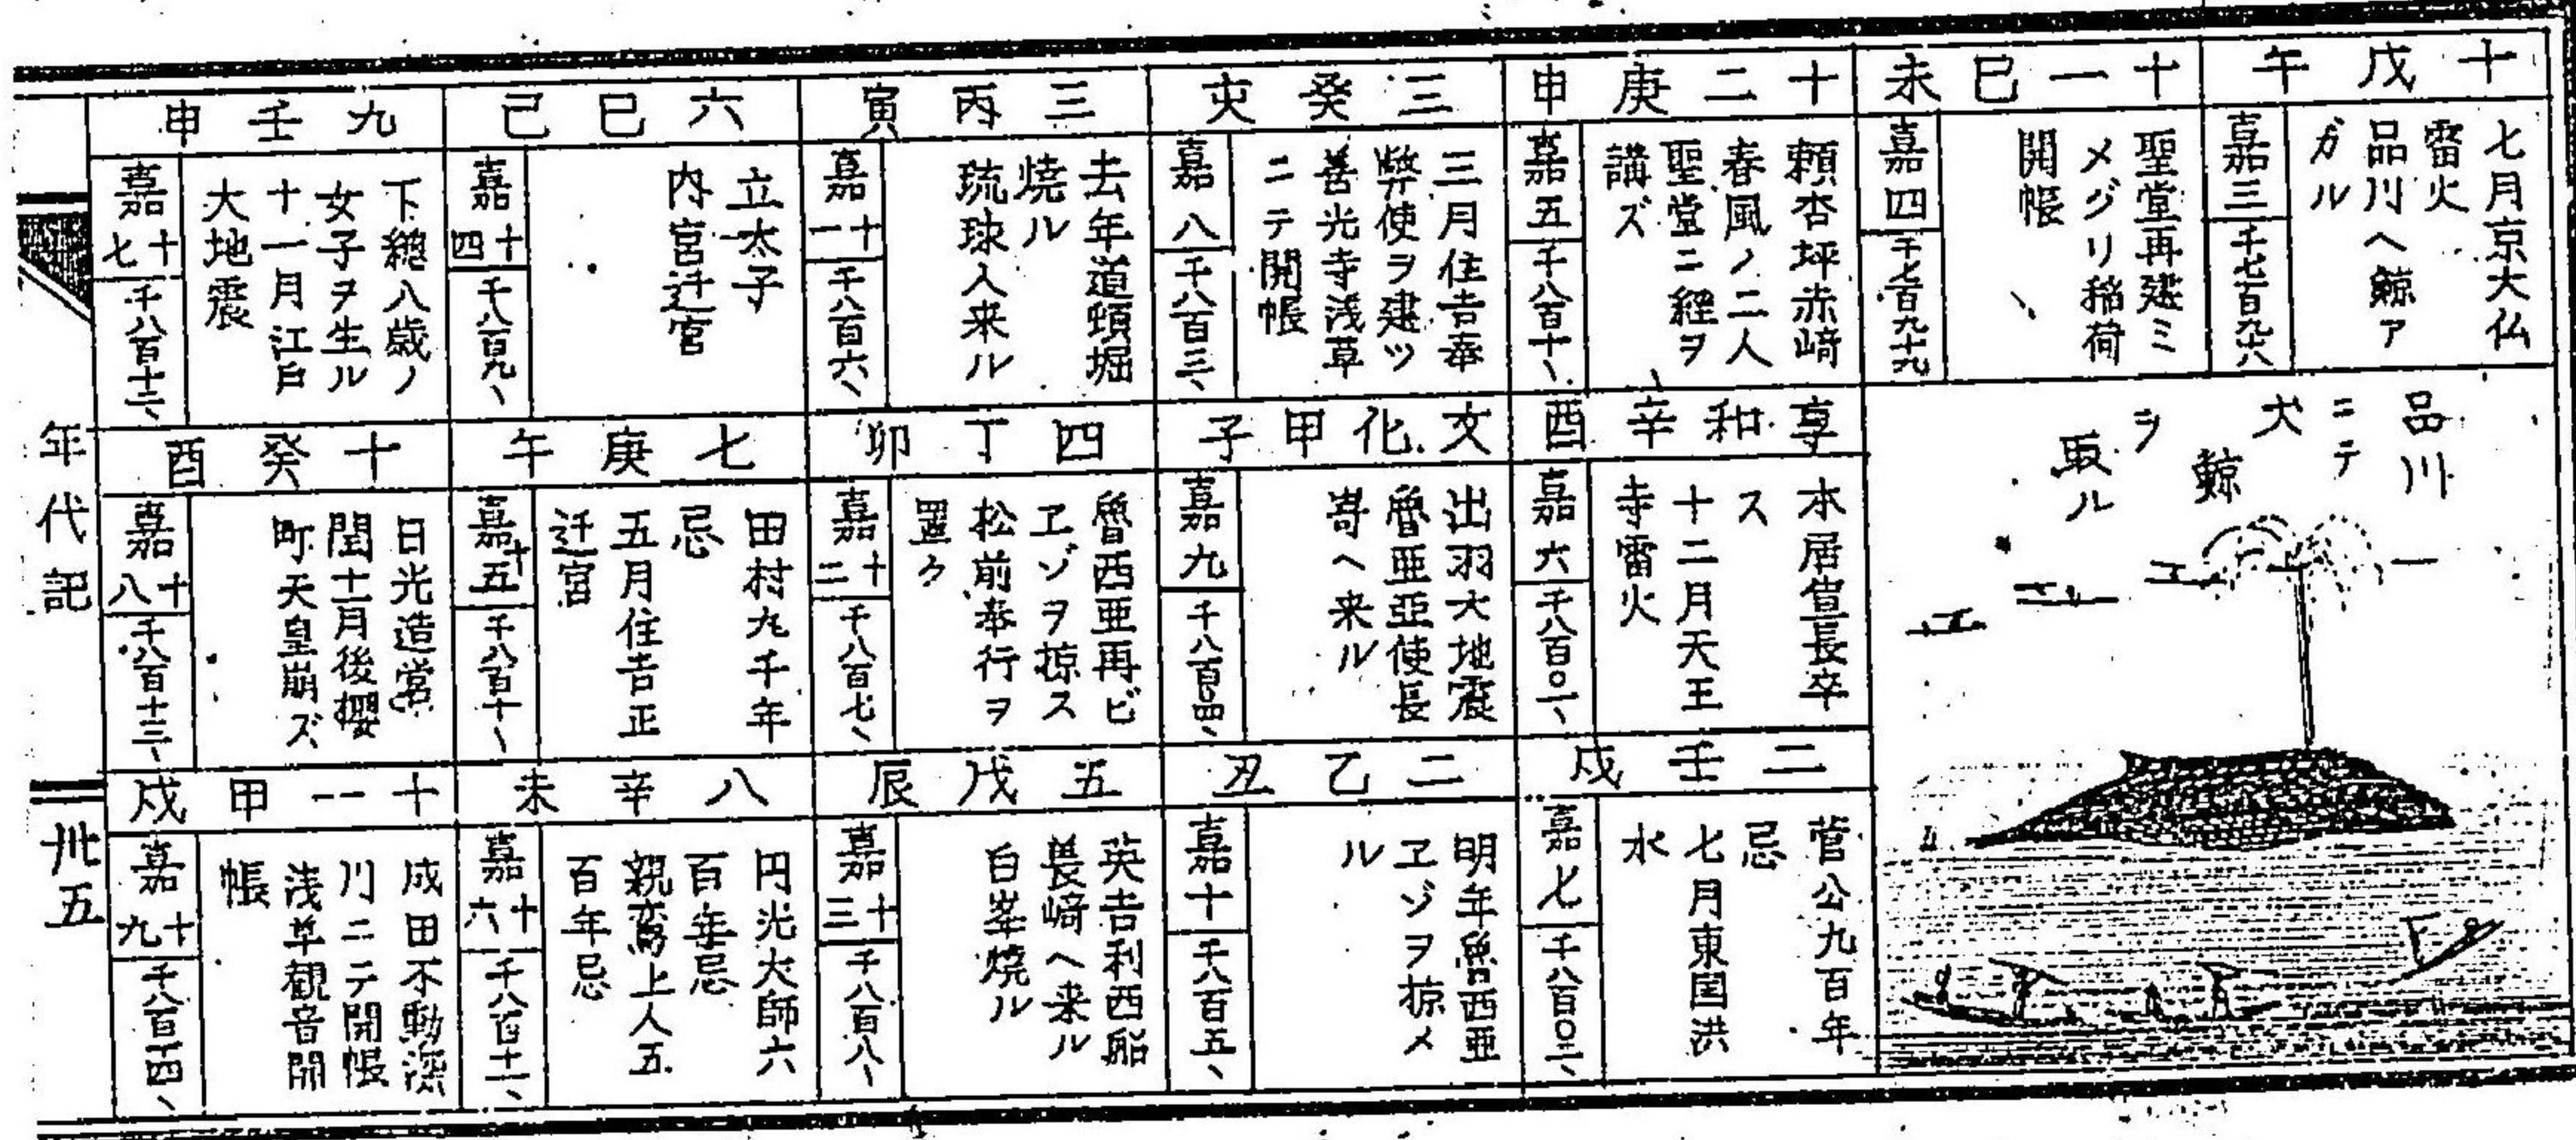 十戊午
七月京大仏
雷火
品川へ鯨ア
ガル
嘉三
千七百九十八
十一己未
聖堂再建ミ
メグリ稲荷
開帳
嘉四
千七百九十九
品川
ニテ
大
鯨
ヲ
取ル
十二庚申
頼杏坪赤﨑
春風ノ二人
聖堂ニ経ヲ
講ズ
嘉五
千八百十、
享和辛酉
本居宣長卒
ス
十二月天王
寺雷火
嘉六
千八百〇一、
二壬戌
菅公九百年
忌
七月東国洪
水
嘉七
千八百〇二、
三癸亥
三月住吉奉
弊使ヲ建ツ
善光寺浅草
ニテ開帳
嘉八
千八百三、
文化甲子
出羽大地震
魯亜亞使長
﨑へ来ル
嘉九
千八百四、
二乙丑
明年魯西亜
ヱゾヲ掠メ
ル
嘉十
千八百五、
三丙寅
去年道頓堀
焼ル
琉球人来ル
嘉十一
千八百六、
四丁卯
魯西亜再ビ
ヱゾヲ掠ス
松前奉行ヲ
置ク
嘉十二
千八百七、
五戊辰
英吉利西船
長﨑へ来ル
白峯焼ル
嘉十三
千八百八、
六己巳
立太子
内宮迁宮
嘉十四
千八百九、
七庚午
田村丸千年
忌
五月住吉正
迁宮
嘉十五
千八百十、
八辛未
円光大師六
百年忌
親鸞上人五
百年忌
嘉十六
千八百十一、
九壬申
下総八歳ノ
女子ヲ生ル
十一月江戸
大地震
嘉十七
千八百十二、
十癸酉
日光造営
閏十一月後櫻
町天皇崩ズ
嘉十八
千八百十三、
十一甲戌
成田不動深
川ニテ開帳
浅草観音開
帳
嘉十九
千八百十四、
年代記
卅五